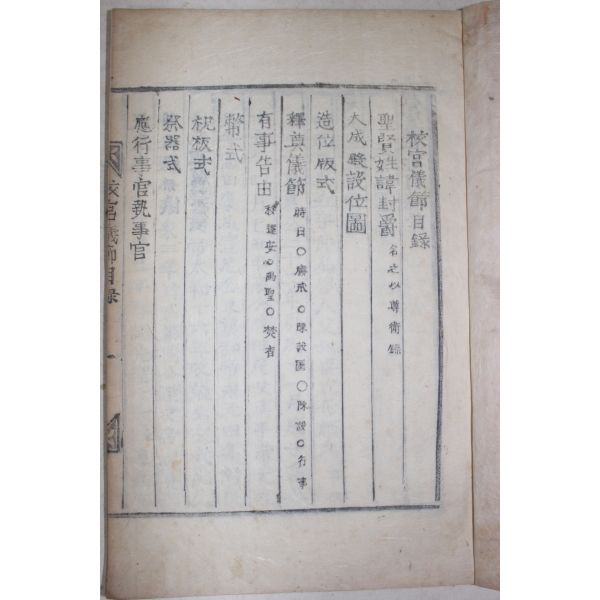 校宮儀節目錄
聖賢姓諱封爵
大成殿設位圖
造位版式
釋奠儀節 時日○齋戒○陳設圖○陳設○行事
有事告由 移還安○焚香
幣式
祝板式
祭器式
應行事官執事官
校宮儀節目录 一